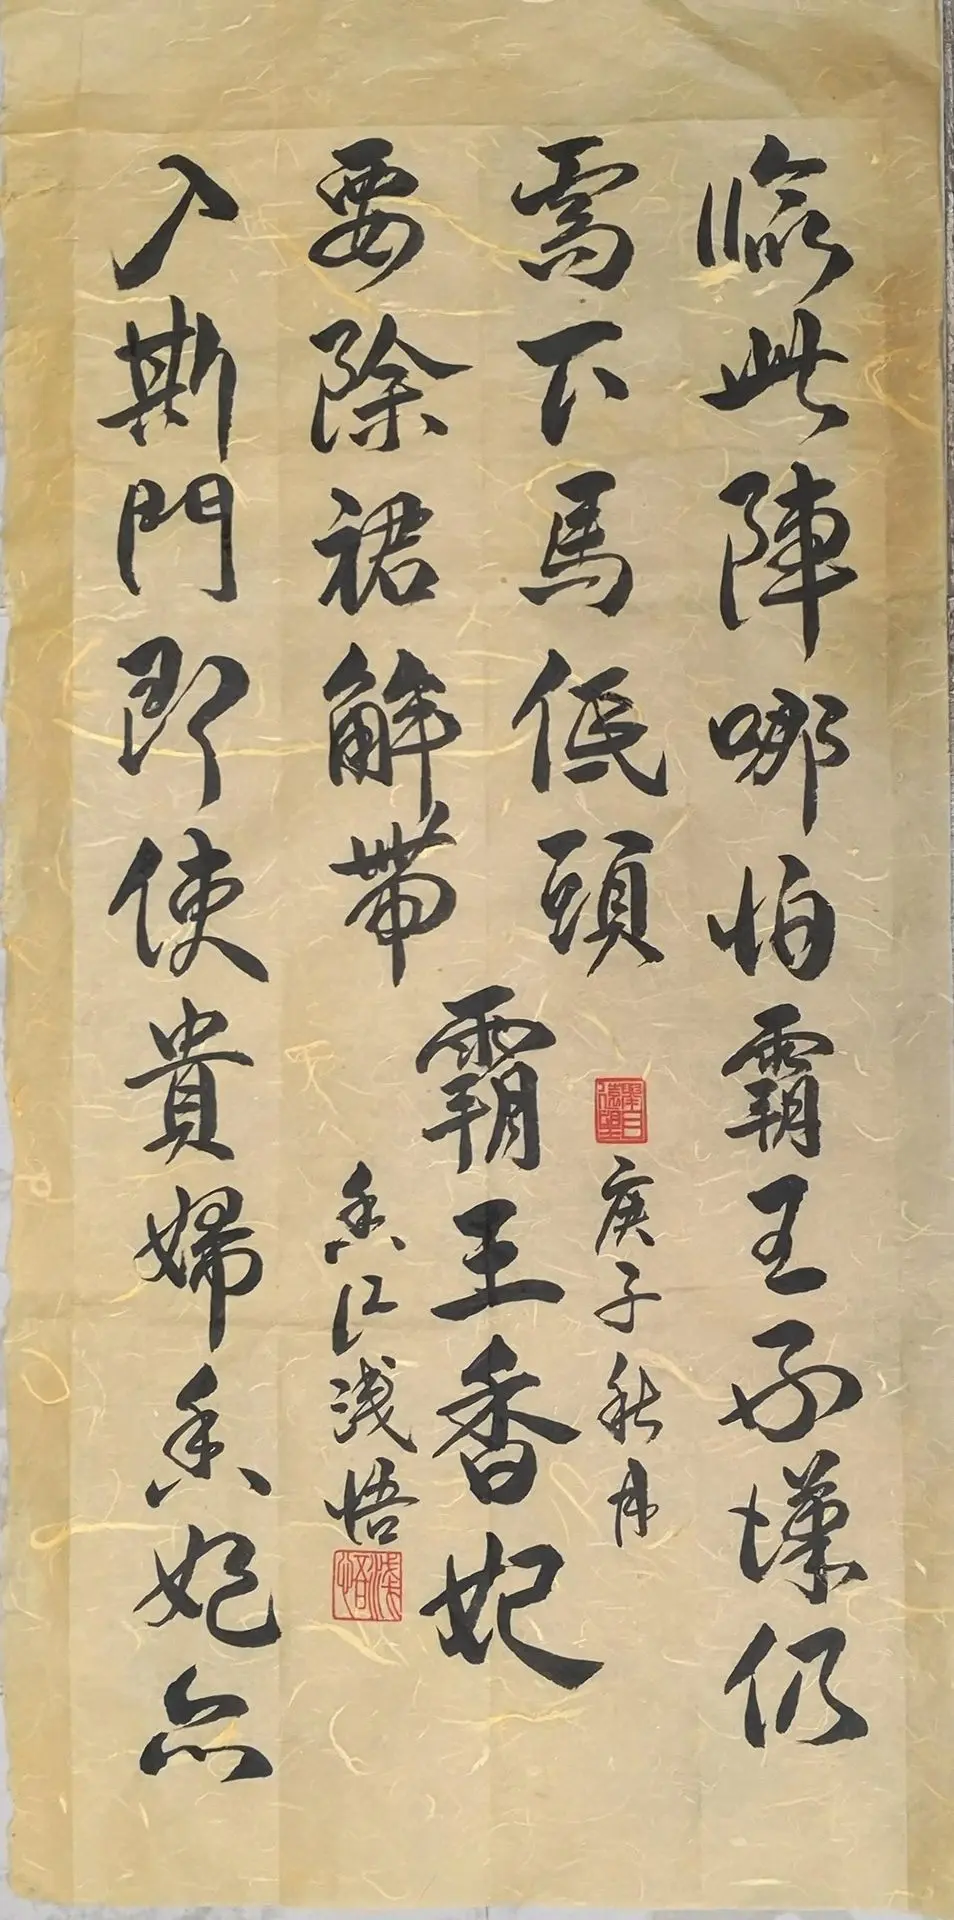 臨此陣哪怕霸王漢仍
需下馬低頭
入斯門即使貴婦香妃亦
要除裙解帶
霸王香妃
庚子秋月
香江淺悟
淺悟